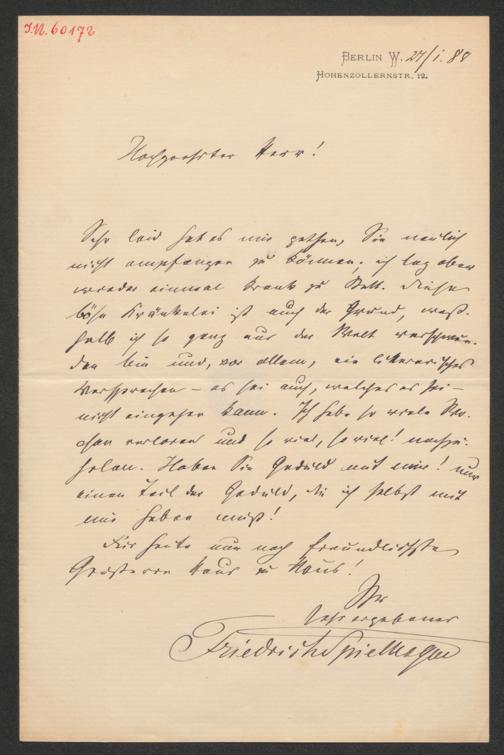 I.N. 60172
BERLIN W. 27/1. 88
HOHENZOLLERNSTR. 12.
Hochgeehrter Herr!
Sehr leid hat es mir gethan, Sie neulich
nicht empfangen zu können; ich lag eben
wieder einmal krank zu Bett. Diese
böse Kränkelei ist auch der Grund, weß-
halb ich so ganz aus der Welt verschwun-
den bin und, vor allem, ein literarisches
Versprechen – es sei auch, welches es sei –
nicht eingehen kann. Ich habe so viele Wo-
chen verloren und so viel, so viel! nachzu-
holen. Haben Sie Geduld mit mir! nur
einen Teil der Geduld, die ich selbst mit
mir haben muß!
Für heute nur noch freundlichste
Grüße von Haus zu Haus!
Ihr
sehr ergebener
Friedrich Spielhagen